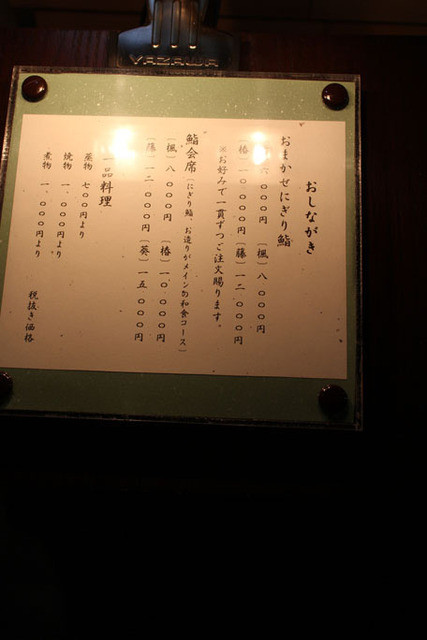 YAZAWA
おしながき
おまかせにぎり鮨
、〇〇〇円 〔楓〕八、〇〇〇円
〔椿〕一〇、〇〇〇円 〔藤〕一二、〇〇〇円
※お好みで一貫ずつご注文賜ります。
鮨会席(にぎり鮨、お造りがメインの和食コース)
〔楓〕八、〇〇〇円 〔椿〕一〇、〇〇〇円
〔藤〕一二、〇〇〇円 〔葵〕一五、〇〇〇円
一品料理
蒸物 七〇〇円より
焼物 一、〇〇〇円より
煮物 一、〇〇〇円より
税抜き価格